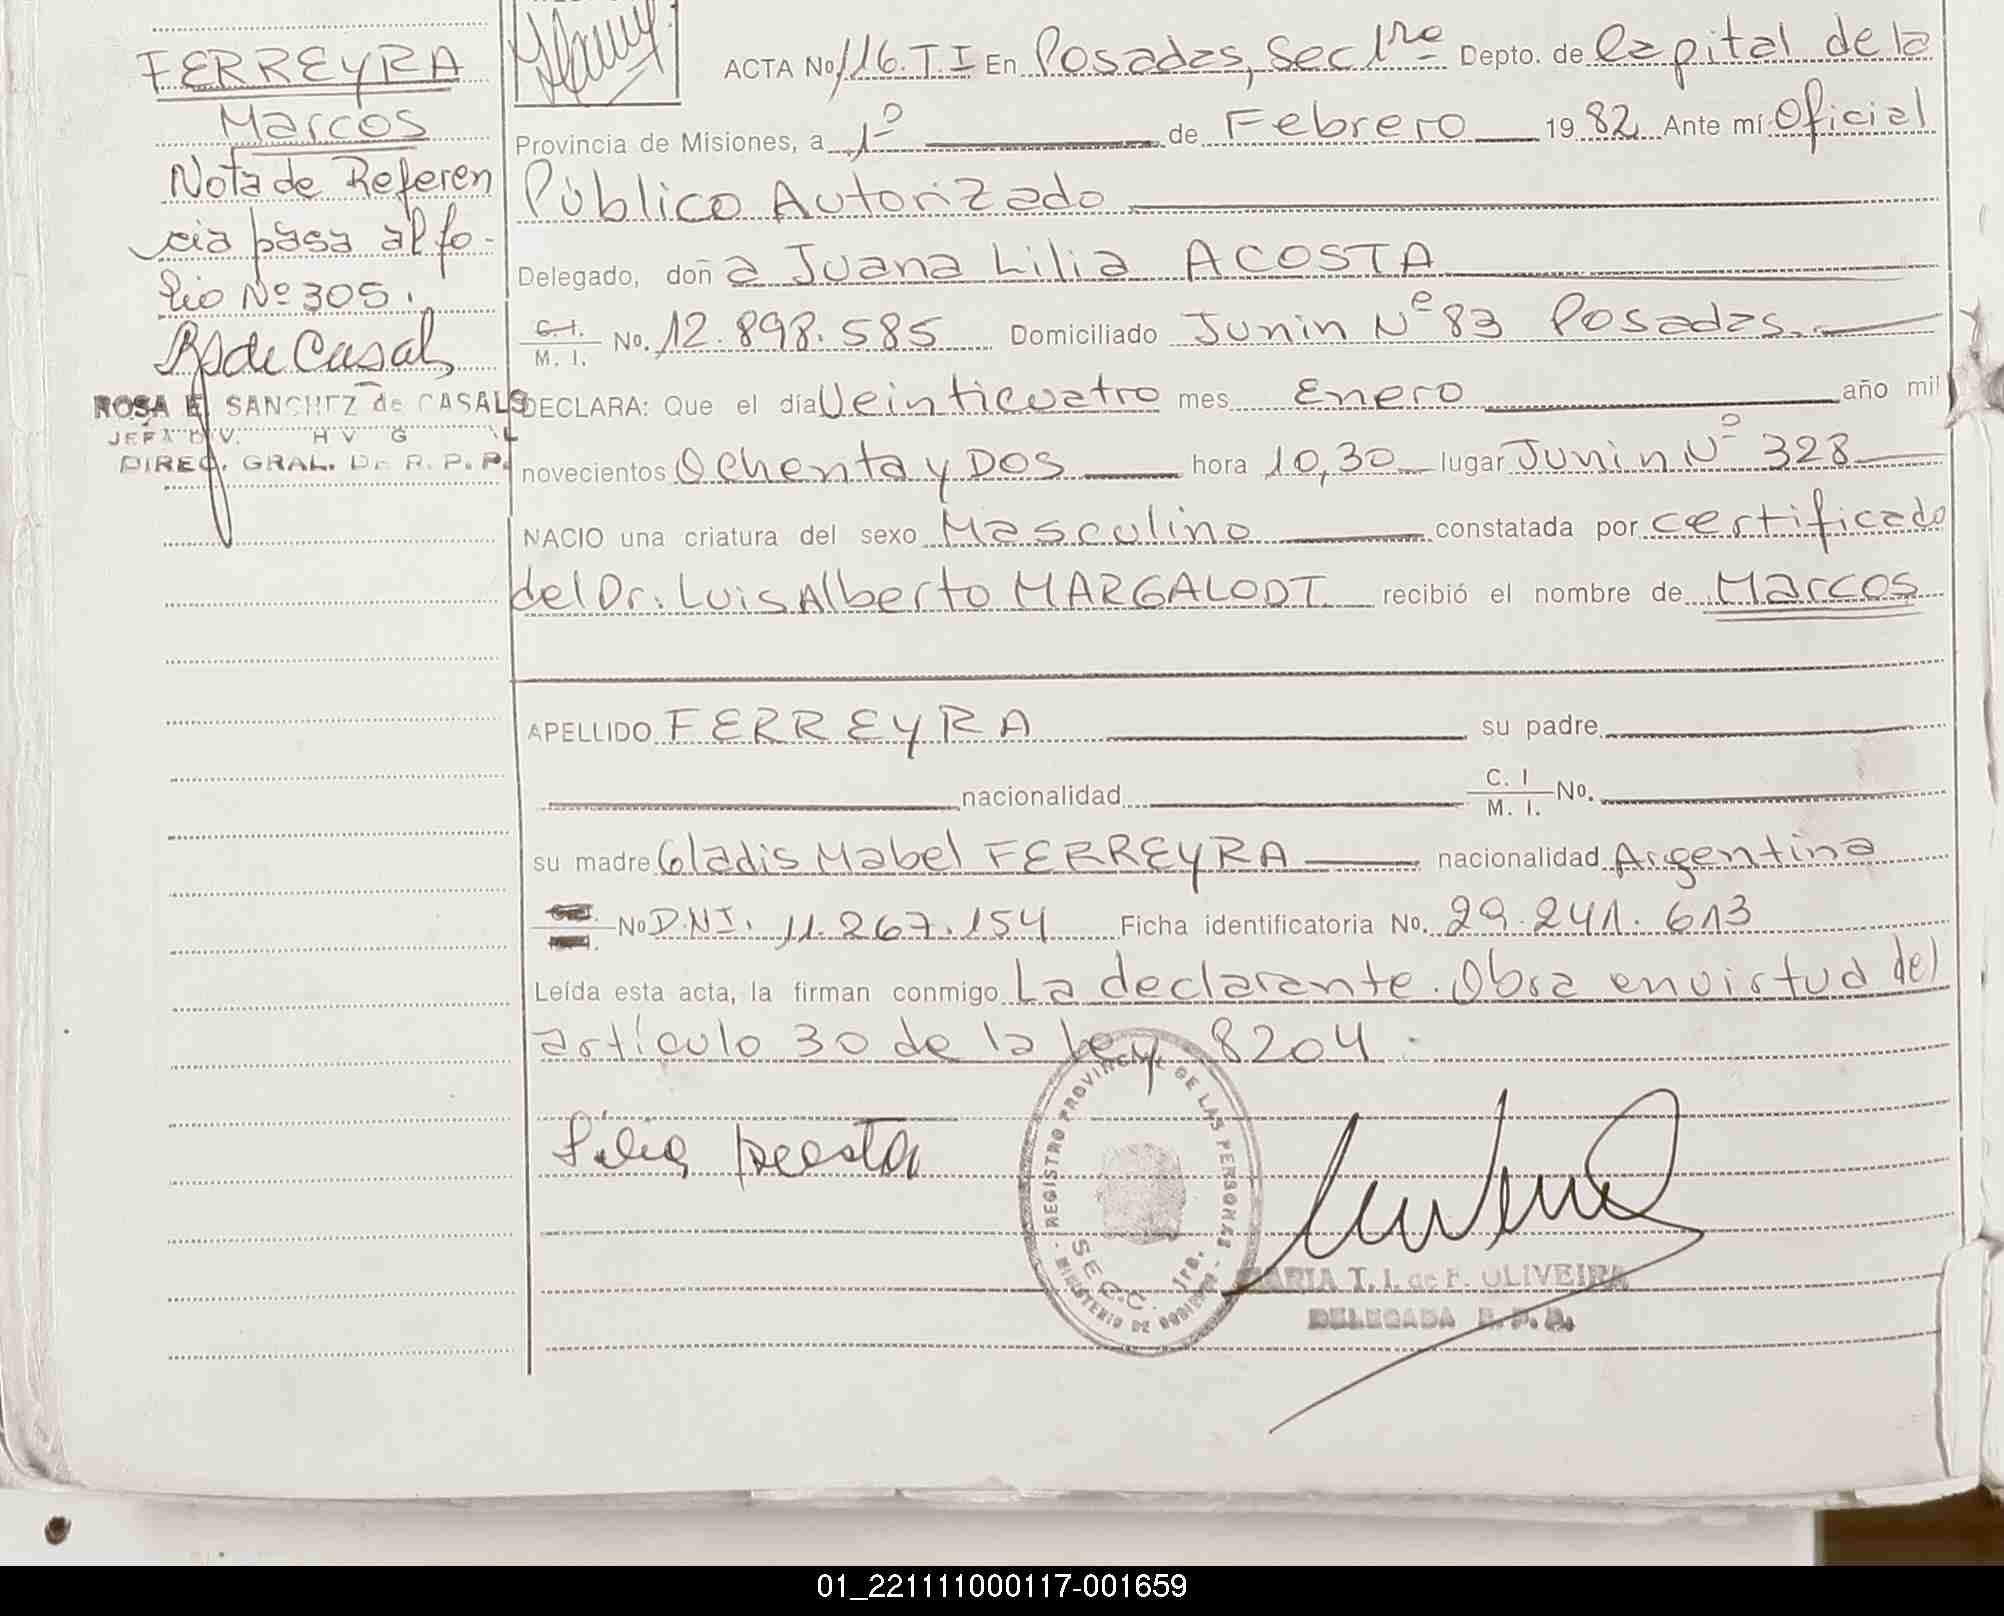 FERREYRA
Marcos
Nota de Referen
cia pasa al fo-
lio Nº 305.
RS de Casals
ROSA E SANCHEZ de CASALS
JEFA DIV.
DIREC. GRAL. DE R. P. P.
ACTA No 116. T. I En Posadas, Sec 1ra Depto. de Capital de la
Provincia de Misiones, a 1º de Febrero 19 82 Ante mí Oficial
Público Autorizado
Delegado, doñ a Juana Lilia ACOSTA
C. I.
M. I. No. 12.898.585 Domiciliado Junin Nº 83 Posadas.
DECLARA: Que el día Veinticuatro mes Enero año mil
novecientos Ochenta y DOS hora 10,30 lugar Junin Nº 328
NACIO una criatura del sexo Masculino constatada por certificado
del Dr. Luis Alberto MARGALODT recibió el nombre de Marcos
APELLIDO FERREYRA su padre
nacionalidad C. I
M. I. No.
su madre Gladis Mabel FERREYRA nacionalidad Argentina
No D.N.I. 11.267.154 Ficha identificatoria No. 29.241.613
Leída esta acta, la firman conmigo La declarante. Obra en virtud del
artículo 30 de la ley 8204.
Lilia Acosta
REGISTRO PROVINCIAL DE LAS PERSONAS
SECC. 1ra.
MINISTERIO DE GOBIERNO
MARIA T. I. de F. OLIVEIRA
DELEGADA R. P. P.
01_221111000117-001659